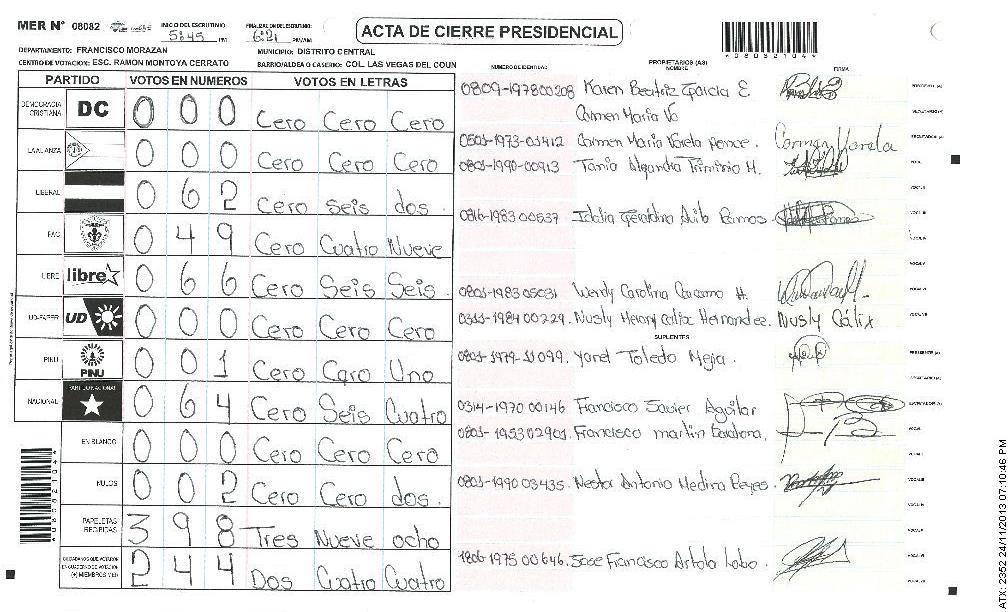 MER N° 08082 INICIO DEL ESCRUTINIO: 5:45 PM FINALIZACION ESCRUTINIO: 6:21 PM/AM
ACTA DE CIERRE PRESIDENCIAL
*08082104*
DEPARTAMENTO: FRANCISCO MORAZAN MUNICIPIO: DISTRITO CENTRAL
CENTRO DE VOTACION: ESC. RAMON MONTOYA CERRATO BARRIO/ALDEA O CASERIO: COL LAS VEGAS DEL COUN
NUMERO DE IDENTIDAD PROPIETARIOS (AS) NOMBRE FIRMA
PARTIDO VOTOS EN NUMEROS VOTOS EN LETRAS
DEMOCRACIA CRISTIANA DC 0 0 0 Cero Cero Cero
LA ALIANZA 0 0 0 Cero Cero Cero
LIBERAL 0 6 2 Cero Seis dos.
PAC 0 4 9 Cero Cuatro Nueve
LIBRE libre 0 6 6 Cero Seis Seis.
UD-FAPER UD 0 0 0 Cero Cero Cero
PINU PINU 0 0 1 Cero Cero Uno
NACIONAL PARTIDO NACIONAL 0 6 4 Cero Seis Cuatro
EN BLANCO 0 0 0 Cero Cero Cero
NULOS 0 0 2 Cero Cero dos.
PAPELETAS RECIBIDAS 3 9 8 Tres Nueve ocho
CIUDADANOS QUE VOTARON EN CUADERNO DE VOTACION (+) MIEMBROS MER 2 4 4 Dos Cuatro Cuatro
0809-197800208 Karen Beatriz Garcia E PRESIDENTE (A)
Carmen Maria
0501-1973-01412 Carmen Maria Varela Ponce. Carmen Varela SECRETARIO (A)
0801-1990-00913 Tania Alejandra Triminio H. VOCAL I
0816-1983 00537 Idalia Geraldina Avila Ramos VOCAL III
0801-1983 05031 Wendy Carolina H.
0311-1984 00229. Nusly Heramy Calix Hernandez. Nusly Cálix
SUPLENTES
0801-1979-11099. Yarel Toledo Mejia. PRESIDENTE (A)
SECRETARIO (A)
0314-1970 00146 Francisco Javier Aguilar ESCRUTADOR (A)
0801-1953 02901. Francisco martin Barahona,
0801-1990 03435. Nestor Antonio Medina Reyes.
1806-1975 00646. Jose Francisco Artola Lobo.
*08082104*
ATX: 2352 24/11/2013 07:10:46 PM